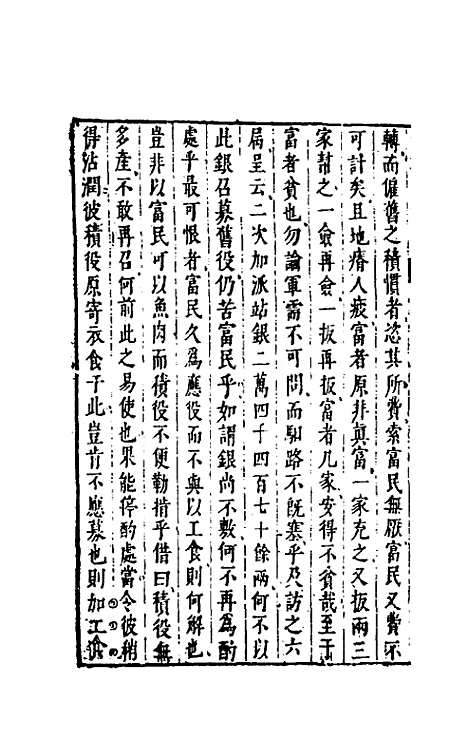 轉而僱舊之積慣者恣其所費索富民無厭富民又費不
可計矣且地瘠人疲富者原非眞富一家充之又扳兩三
家幇之一僉再僉一扳再扳富者几家安得不貧哉至于
富者貧也勿論軍需不可問而馹路不旣塞乎及訪之六
局呈云二次加派站銀二萬四千四百七十餘兩何不以
此銀召募舊役仍苦富民乎如謂銀尚不敷何不再爲酌
處乎最可恨者富民久爲應役而不與以工食則何解也
豈非以富民可以魚肉而積役不便勒掯乎借曰積役無
多產不敢再召何前此之易使也果能停酌處當令彼稍
得沾潤彼積役原寄衣食于此豈肯不應募也則加工食